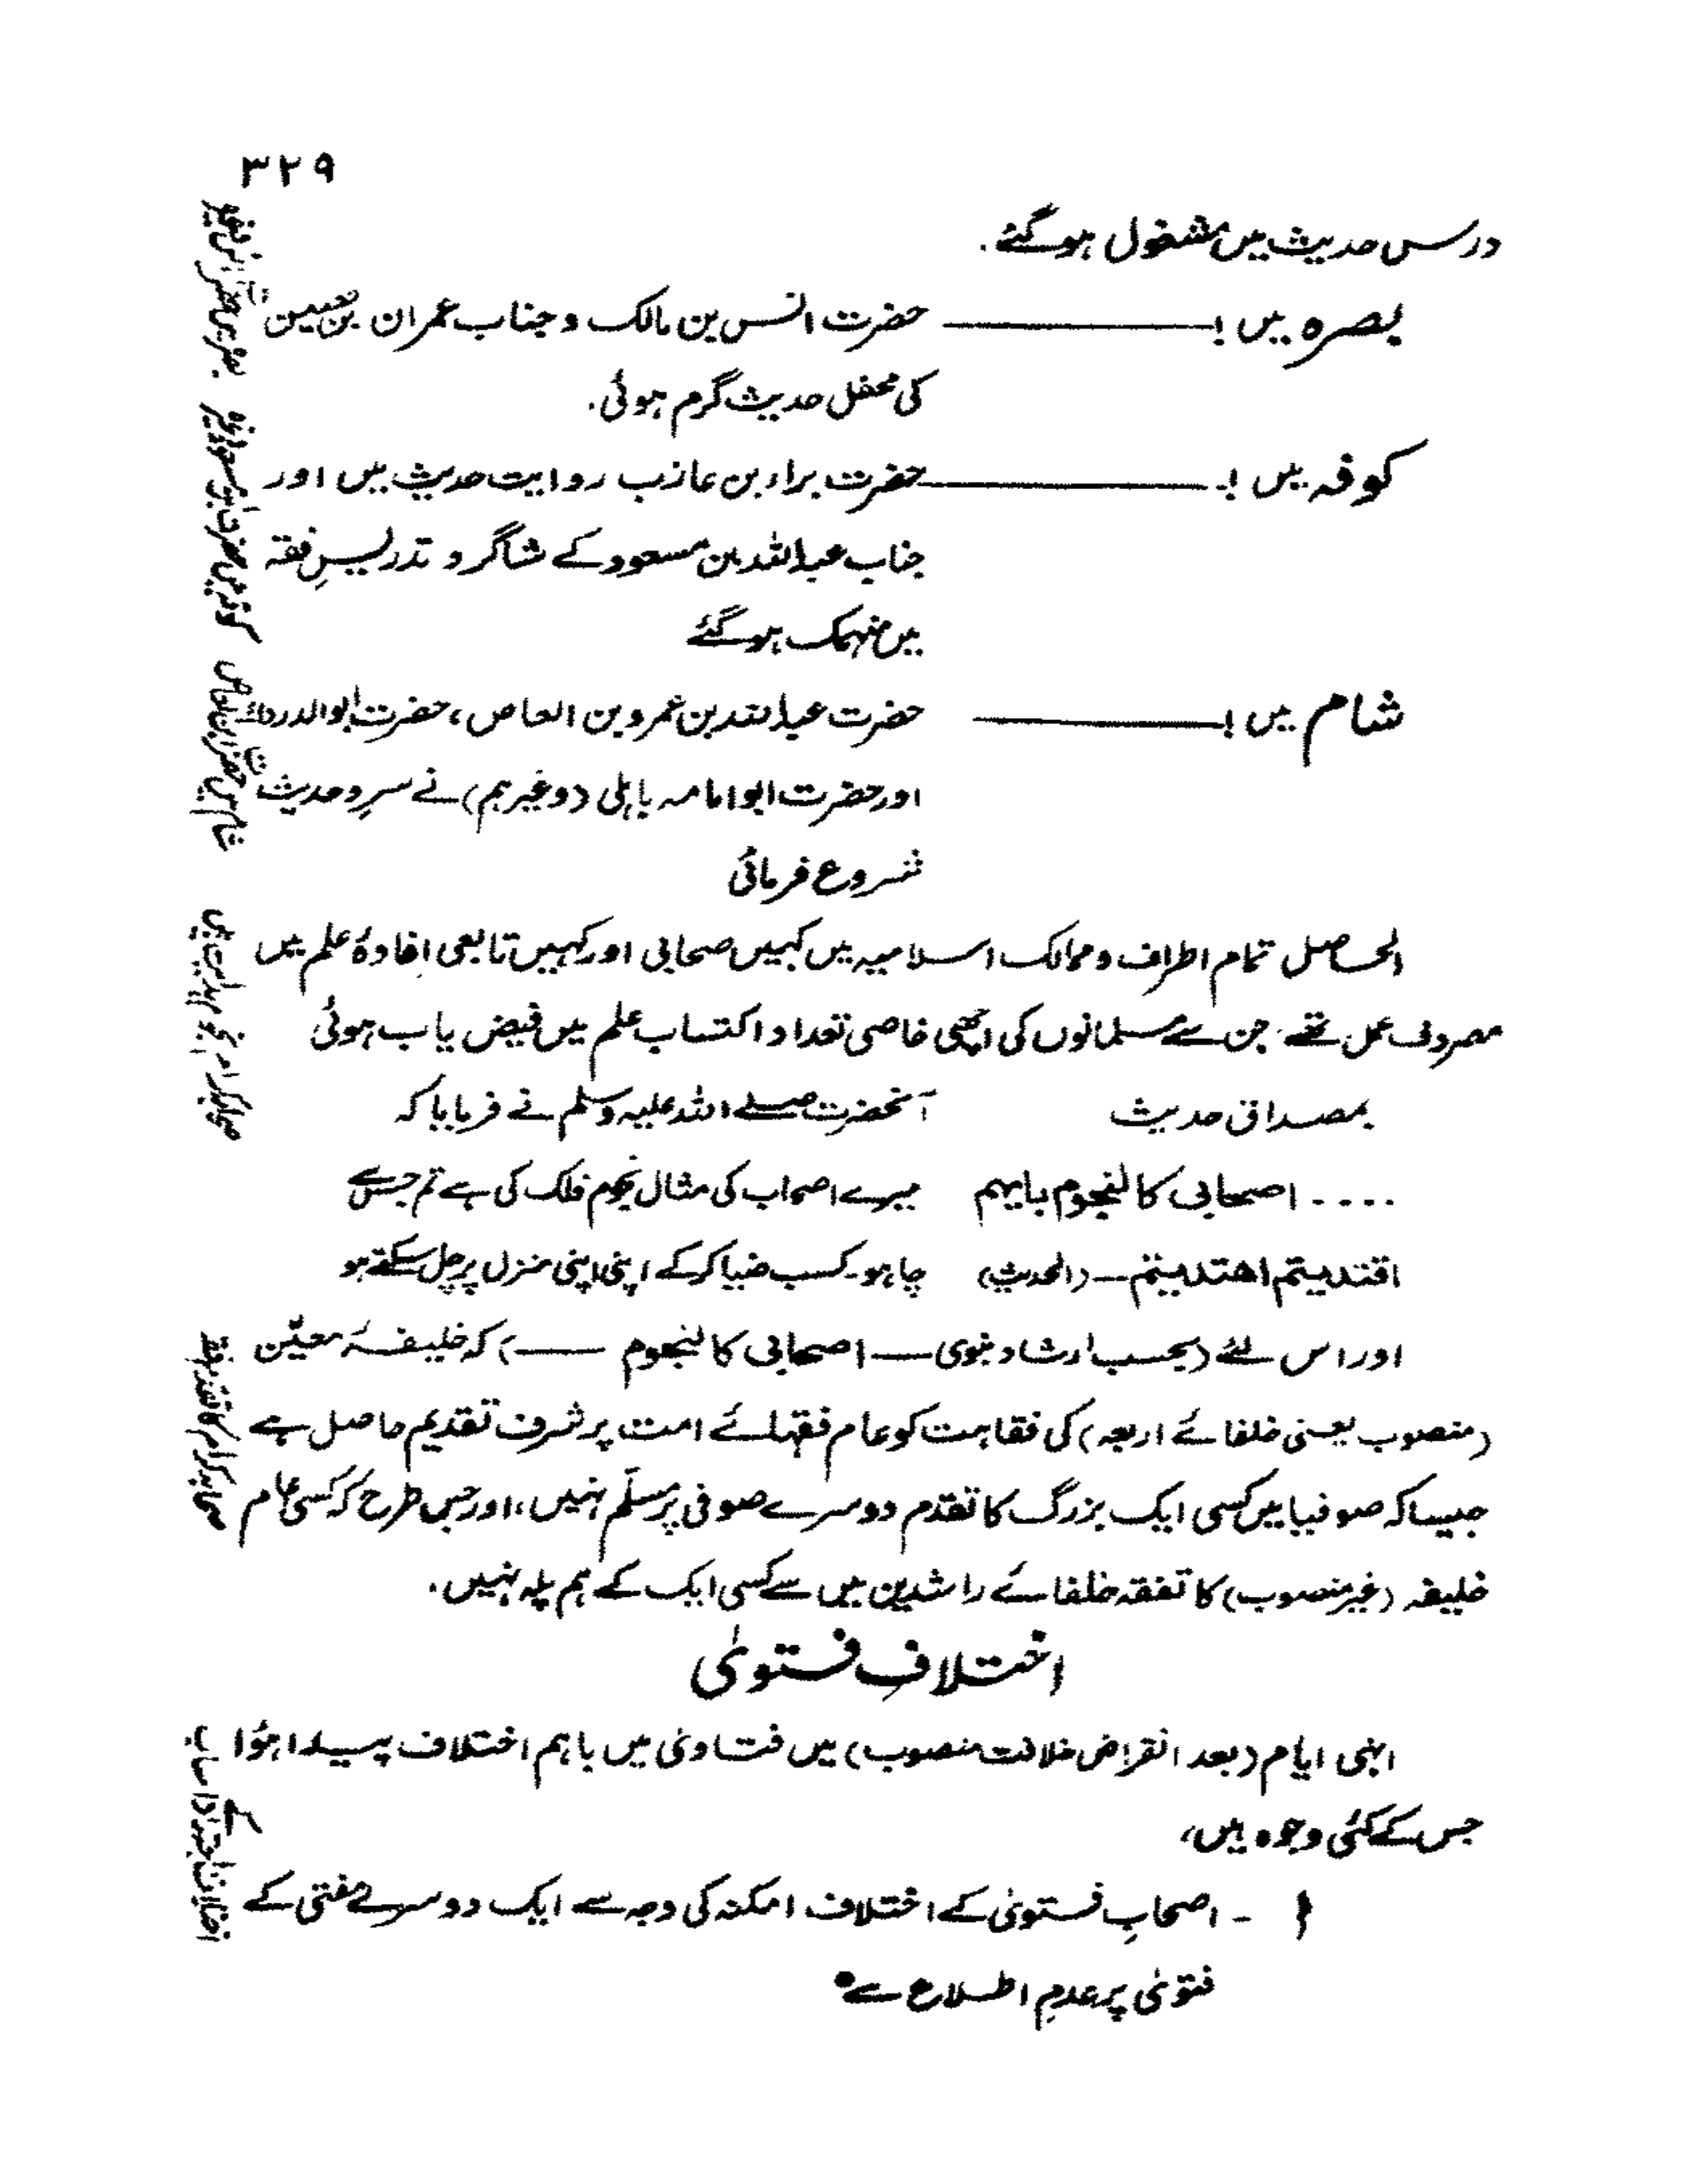 ۳۲۹
درس حدیث میں مشغول ہوگئے۔
بصرہ میں! ——— حضرت انس بن مالک و جناب عمران بن حصین
کی محفل حدیث گرم ہوئی۔
کوفہ میں! ——— حضرت براء بن عازب روایت حدیث میں اور
جناب عبداللہ بن مسعود کے شاگرد تدریسِ فقہ
میں منہمک ہوگئے
شام میں! ——— حضرت عبداللہ بن عمرو بن العاص، حضرت ابوالدرداء
اور حضرت ابوامامہ باہلی (وغیرہم) نے سرِ و حدیث
شروع فرمائی
الحاصل تمام اطراف و ممالک اسلامیہ میں کہیں صحابی اور کہیں تابعی افادۂ علم میں
مصروف عمل تھے جن سے مسلمانوں کی اچھی خاصی تعداد اکتساب علم میں فیض یاب ہوئی
بمصداق حدیث آنحضرت صلے اللہ علیہ وسلم نے فرمایا کہ
.... اصحابی کالنجوم بایہم میرے اصحاب کی مثال نجوم فلک کی ہے تم جس سے
اقتدیتم اھتدیتم — (الحدیث) چاہو۔ کسب ضیا کرکے اپنی اپنی منزل پر چل سکتے ہو
اور اس لئے (بحسب ارشاد نبوی — اصحابی کالنجوم ——) کہ خلیفۂ معیّن
(منصوب یعنی خلفائے اربعہ) کی فقاہت کو عام فقہائے امت پر شرف تقدیم حاصل ہے
جیسا کہ صوفیا میں کسی ایک بزرگ کا تقدم دوسرے صوفی پر مسلّم نہیں، اور جس طرح کہ کسی عام
خلیفہ (غیر منصوب) کا تفقہ خلفائے راشدین میں سے کسی ایک کے ہم پلہ نہیں۔
اختلافِ فتویٰ
انہی ایام (بعد انقراض خلافت منصوب) میں فتاویٰ میں باہم اختلاف پیدا ہُوا
جس کے کئی وجوہ ہیں،
۱ - اصحابِ فتویٰ کے اختلاف امکنہ کی وجہ سے ایک دوسرے مفتی کے
فتویٰ پر عدمِ اطلاع سے•